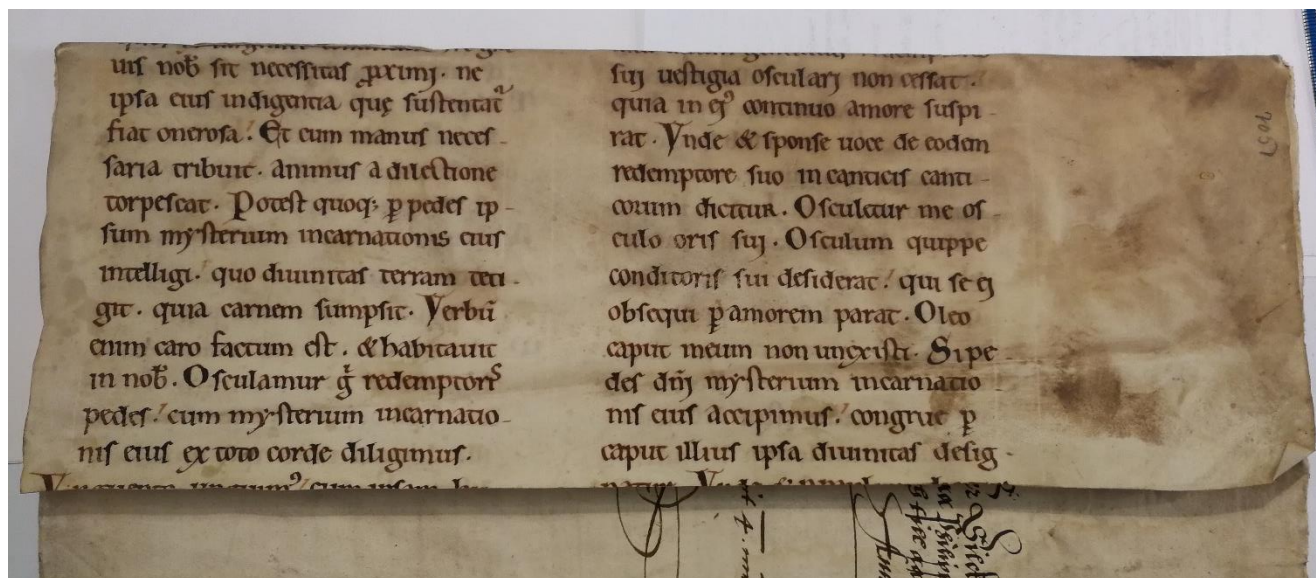 uis nob̄ sit necessitas ꝓximi. ne
ipsa eius indigentia quę sustentat᷑
fiat onerosa. Et cum manus neces-
saria tribuit. animus a dilectione
torpescat. Potest quoq; ꝑ pedes ip-
sum mysterium incarnationis eius
intelligi. quo diuinitas terram teti-
git. quia carnem sumpsit. Verbū
enim caro factum est. & habitauit
in nob̄. Osculamur g̊ redemptorꝭ
pedes. cum mysterium incarnatio-
nis eius ex toto corde diligimus.
sui uestigia osculari non cessat.
quia in ejꝰ continuo amore suspi-
rat. Vnde & sponse uoce de eodem
redemptore suo in canticis canti-
corum dicitur. Osculetur me os-
culo oris sui. Osculum quippe
conditoris sui desiderat. qui se ej
obsequi ꝑ amorem parat. Oleo
caput meum non unxisti. Si pe-
des dn̄i mysterium incarnatio
nis eius accipimus. congrue ꝑ
caput illius ipsa diuinitas desig-